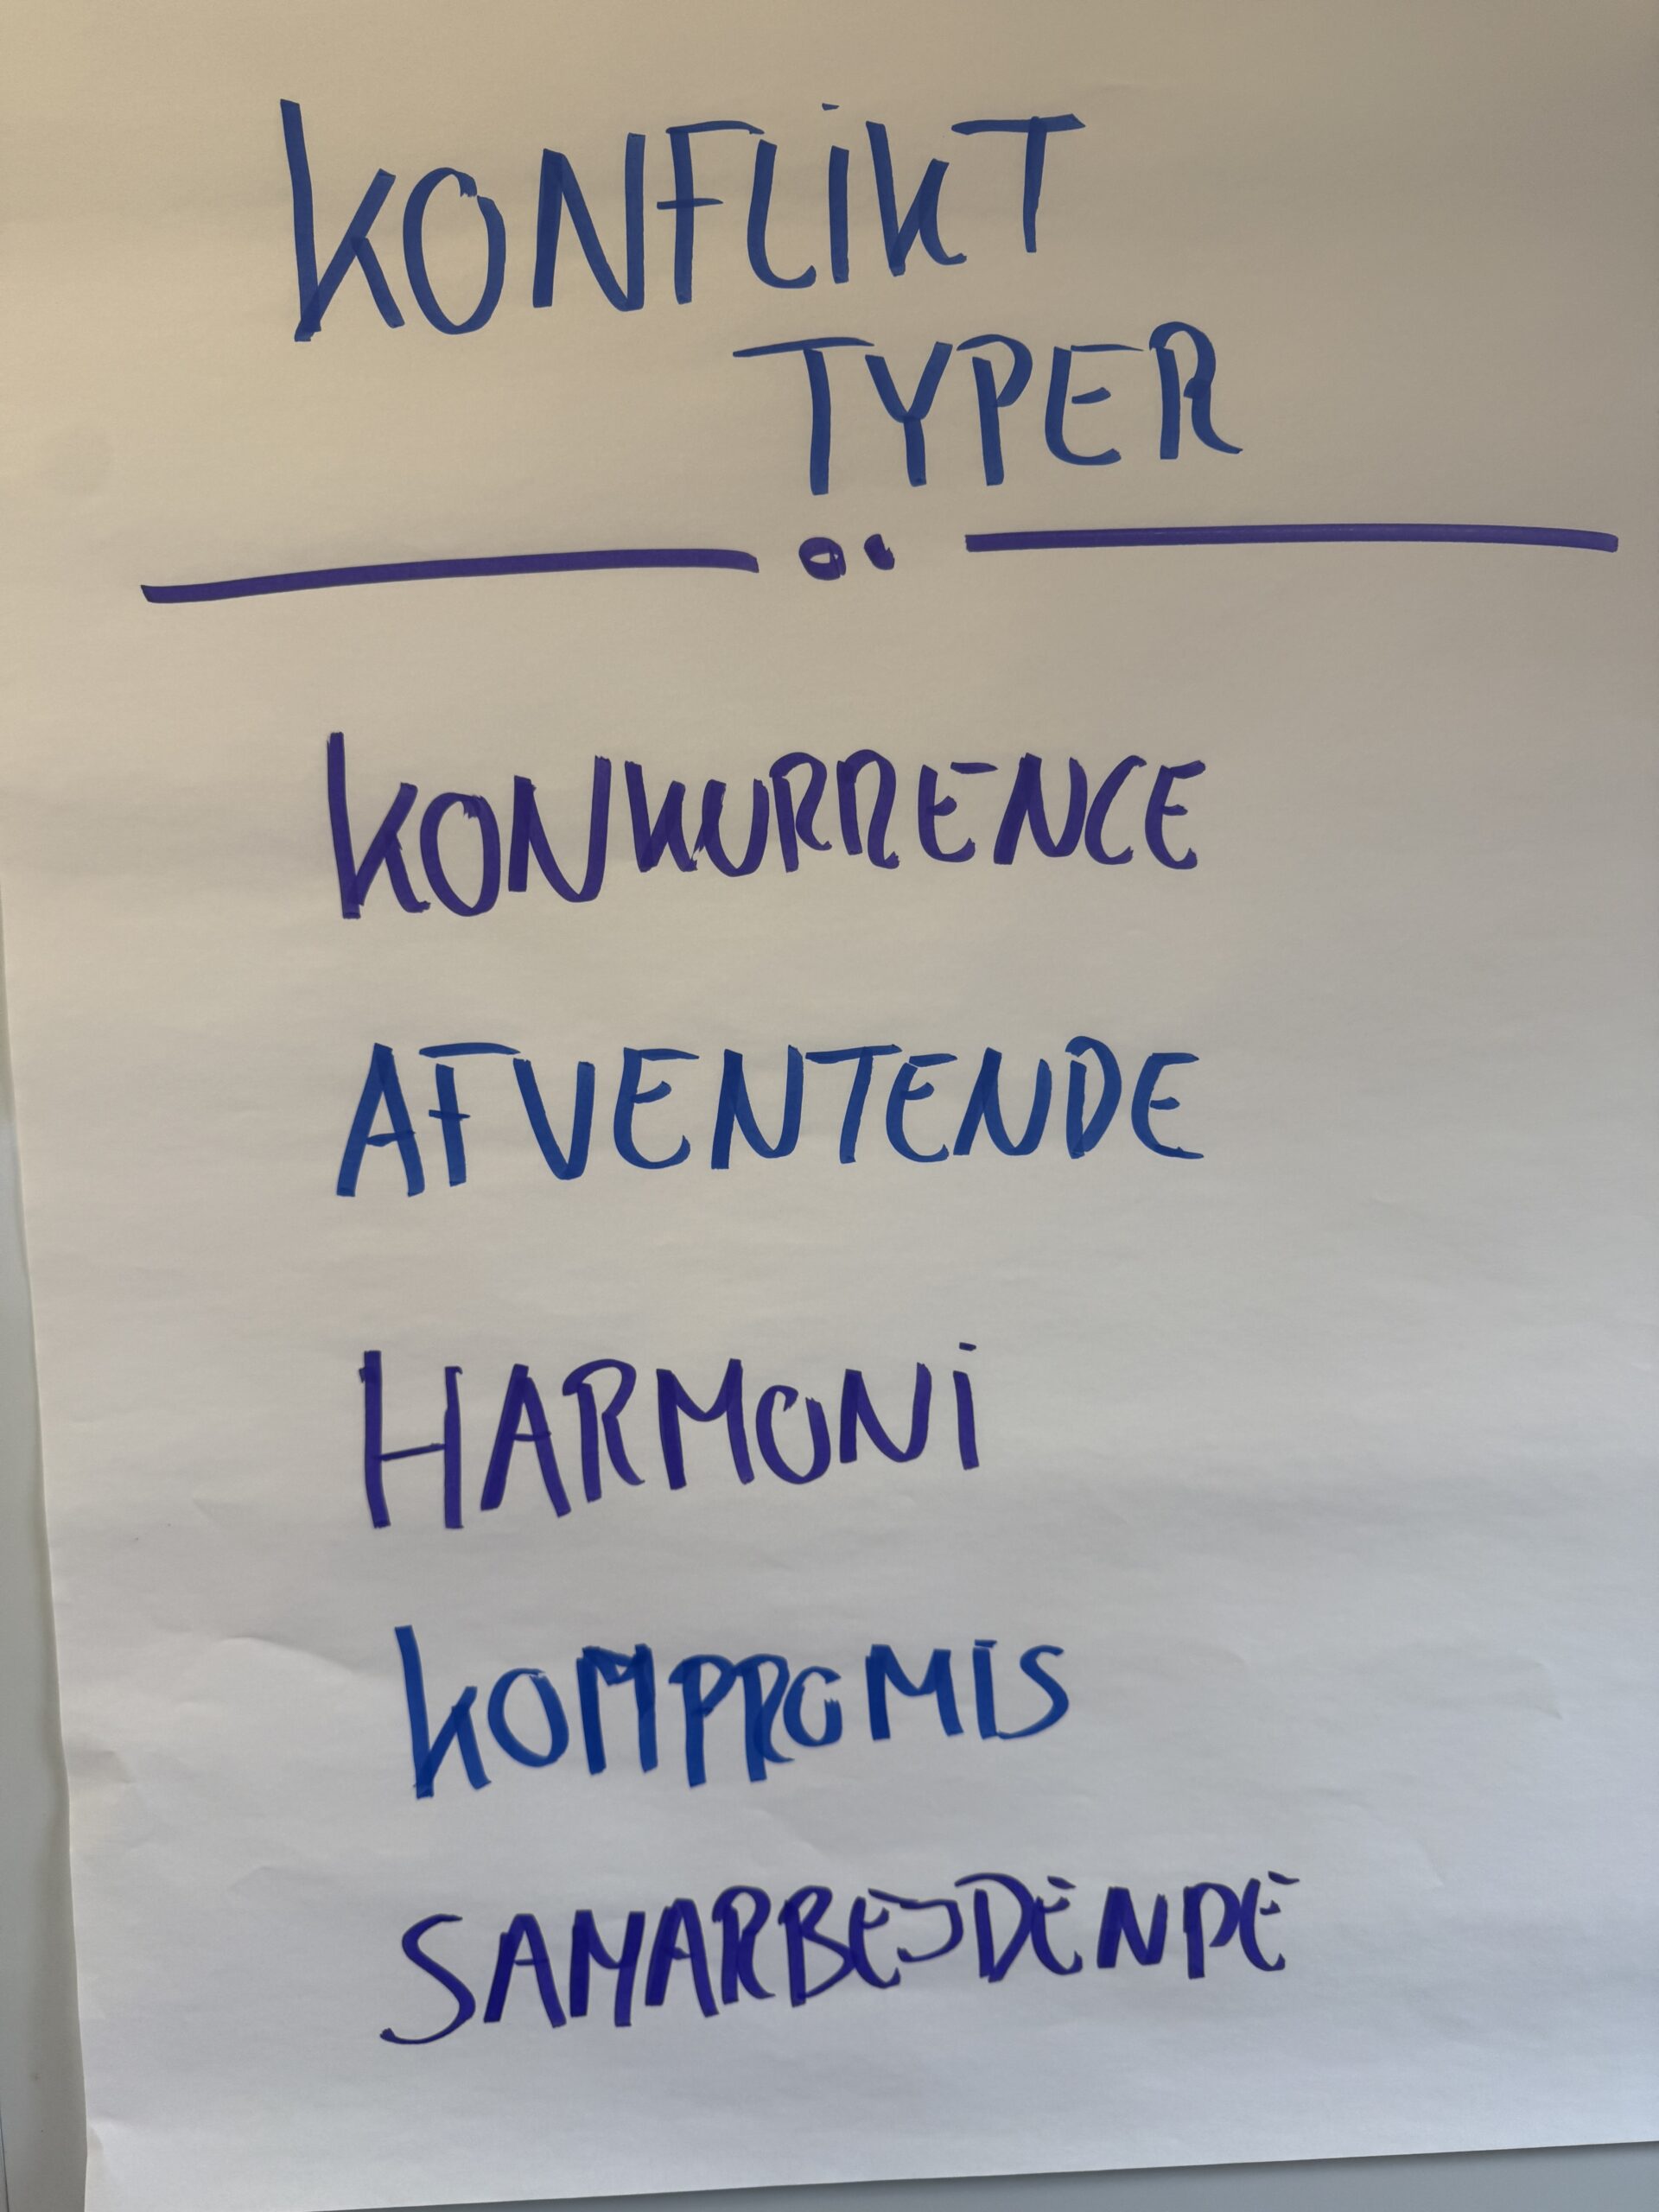 KONFLIKT
TYPER
KONKURRENCE
AFVENTENDE
HARMONI
KOMPROMIS
SAMARBEJDENDE